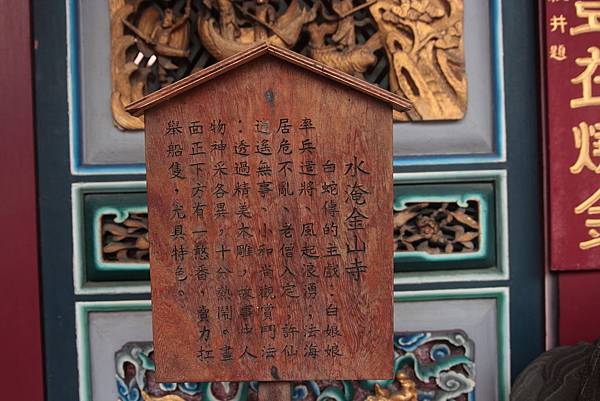 水淹金山寺
白蛇傳的主戲：白娘娘
率兵遣將、風起浪湧，法海
居危不亂、老僧入定，許仙
逍遙無事、小和尚觀賞鬥法
：透過精美木雕，故事中人
物神采各異，十分熱鬧。畫
面正下方有一憨番，賣力扛
舉船隻，尤具特色。
豆在燃金
井題